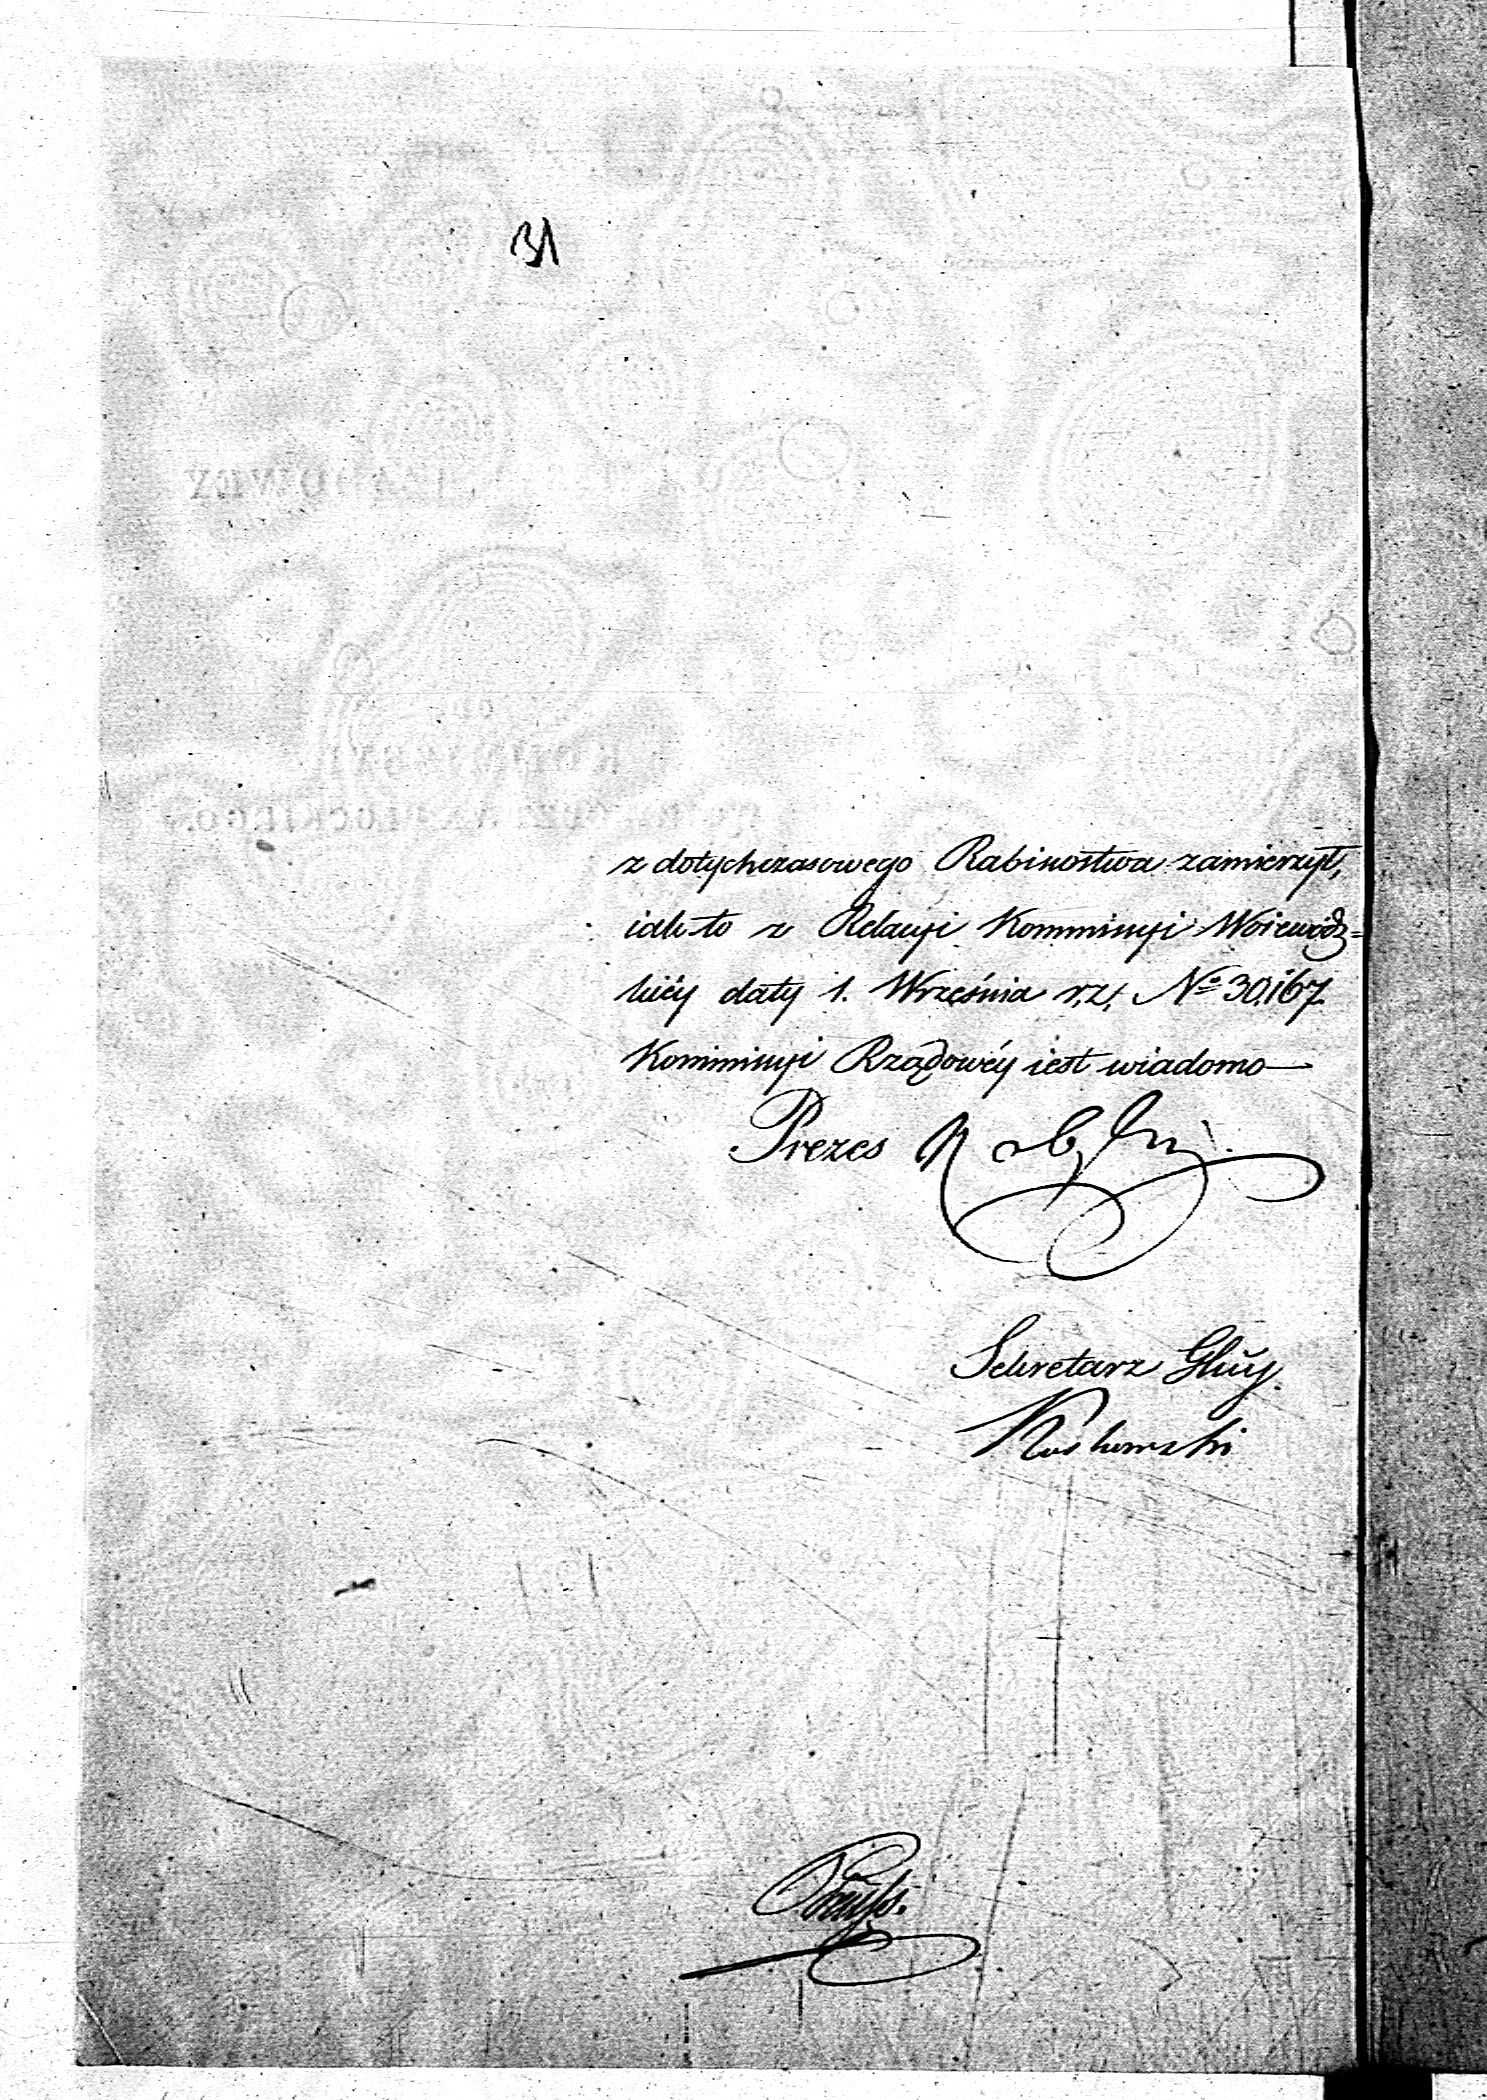 31
z dotychczasowego Rabinostwa zamierzył,
iak to z Relacyi Kommissyi Woiewódz=
kiéy daty 1. Września r. z. No 30,167
Kommissyi Rządowéy iest wiadomo—
Prezes
Sekretarz Głny.